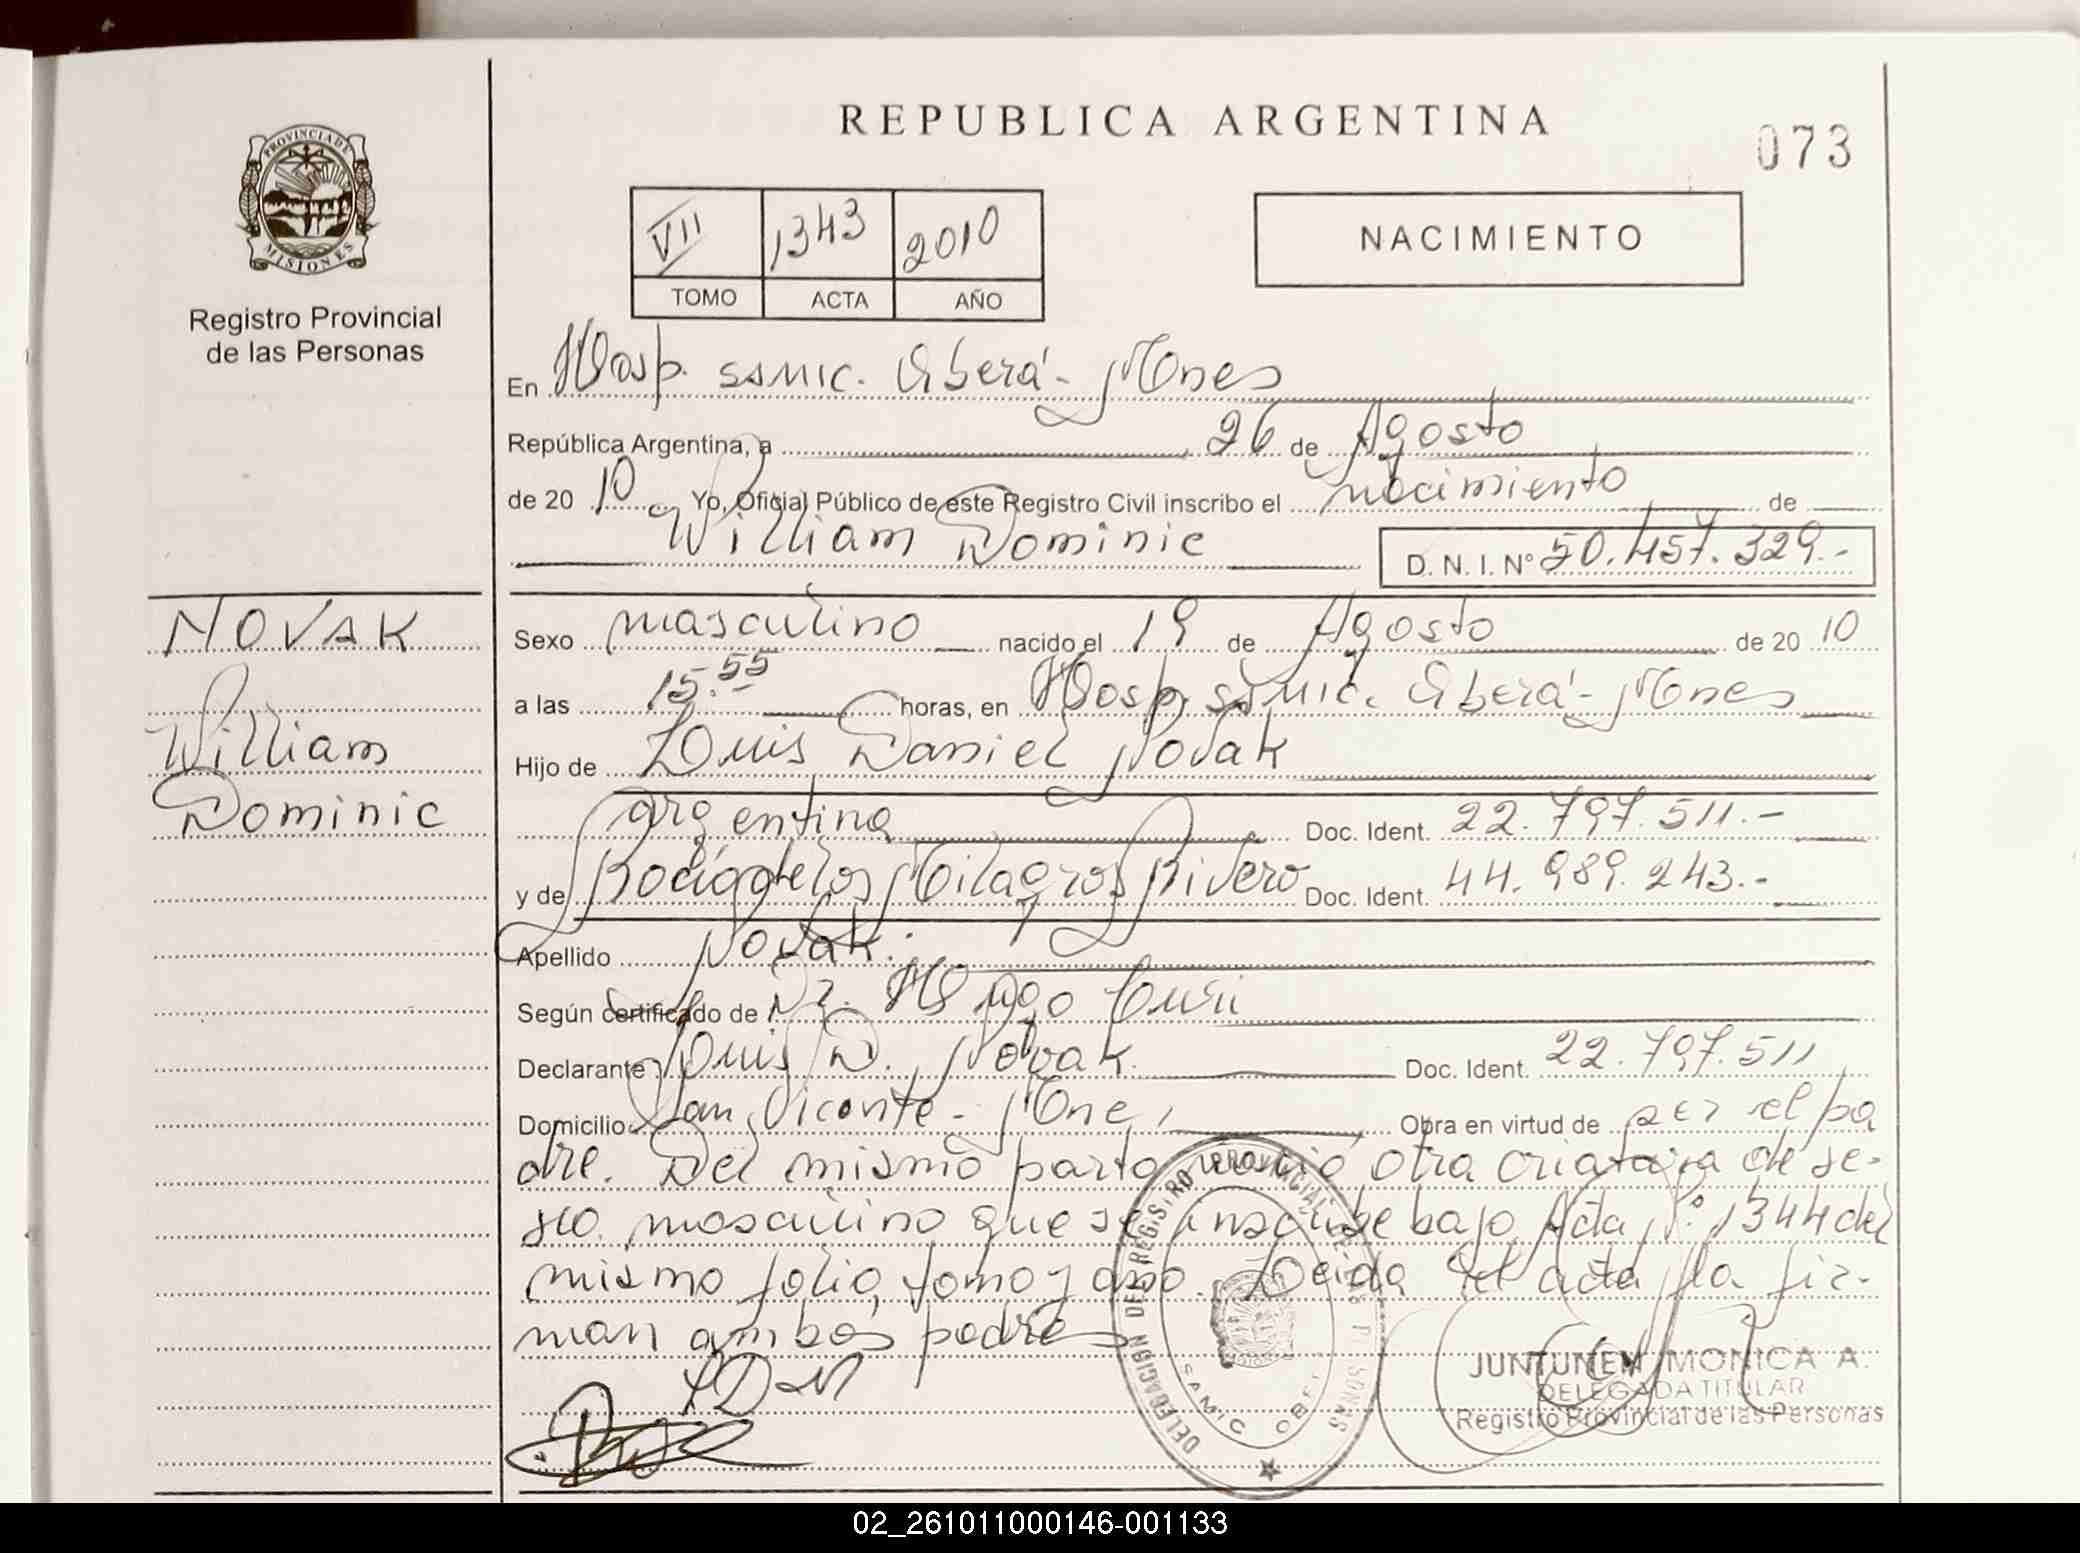 REPUBLICA ARGENTINA
073
PROVINCIA DE MISIONES
Registro Provincial
de las Personas
VII 1343 2010
TOMO ACTA AÑO
NACIMIENTO
En Hosp. SAMIC. Oberá - Mnes
República Argentina, a 26 de Agosto
de 20 10 Yo, Oficial Público de este Registro Civil inscribo el nacimiento de
William Dominic D. N. I. Nº 50.457.329.-
NOVAK
William
Dominic
Sexo masculino nacido el 19 de Agosto de 20 10
a las 15.55 horas, en Hosp. SAMIC. Oberá - Mnes
Hijo de Luis Daniel Novak
argentina Doc. Ident. 22.797.511.-
y de Milagros Rivero Doc. Ident. 44.989.243.-
Apellido Novak.
Según certificado de Dr. Hugo Curi
Declarante Luis D. Novak. Doc. Ident. 22.797.511
Domicilio San Vicente - Mnes, Obra en virtud de ser el pa
dre. Del mismo parto nació otra criatura de se-
xo masculino que se inscribe bajo Acta Nº 1344 del
mismo folio, tomo y año. Leida el acta, la fir-
man ambos padres
LDN
DELEGACION DEL REGISTRO PROVINCIAL DE LAS PERSONAS
SAMIC OBERA
JUNTUNEN MONICA A.
DELEGADA TITULAR
Registro Provincial de las Personas
02_261011000146-001133